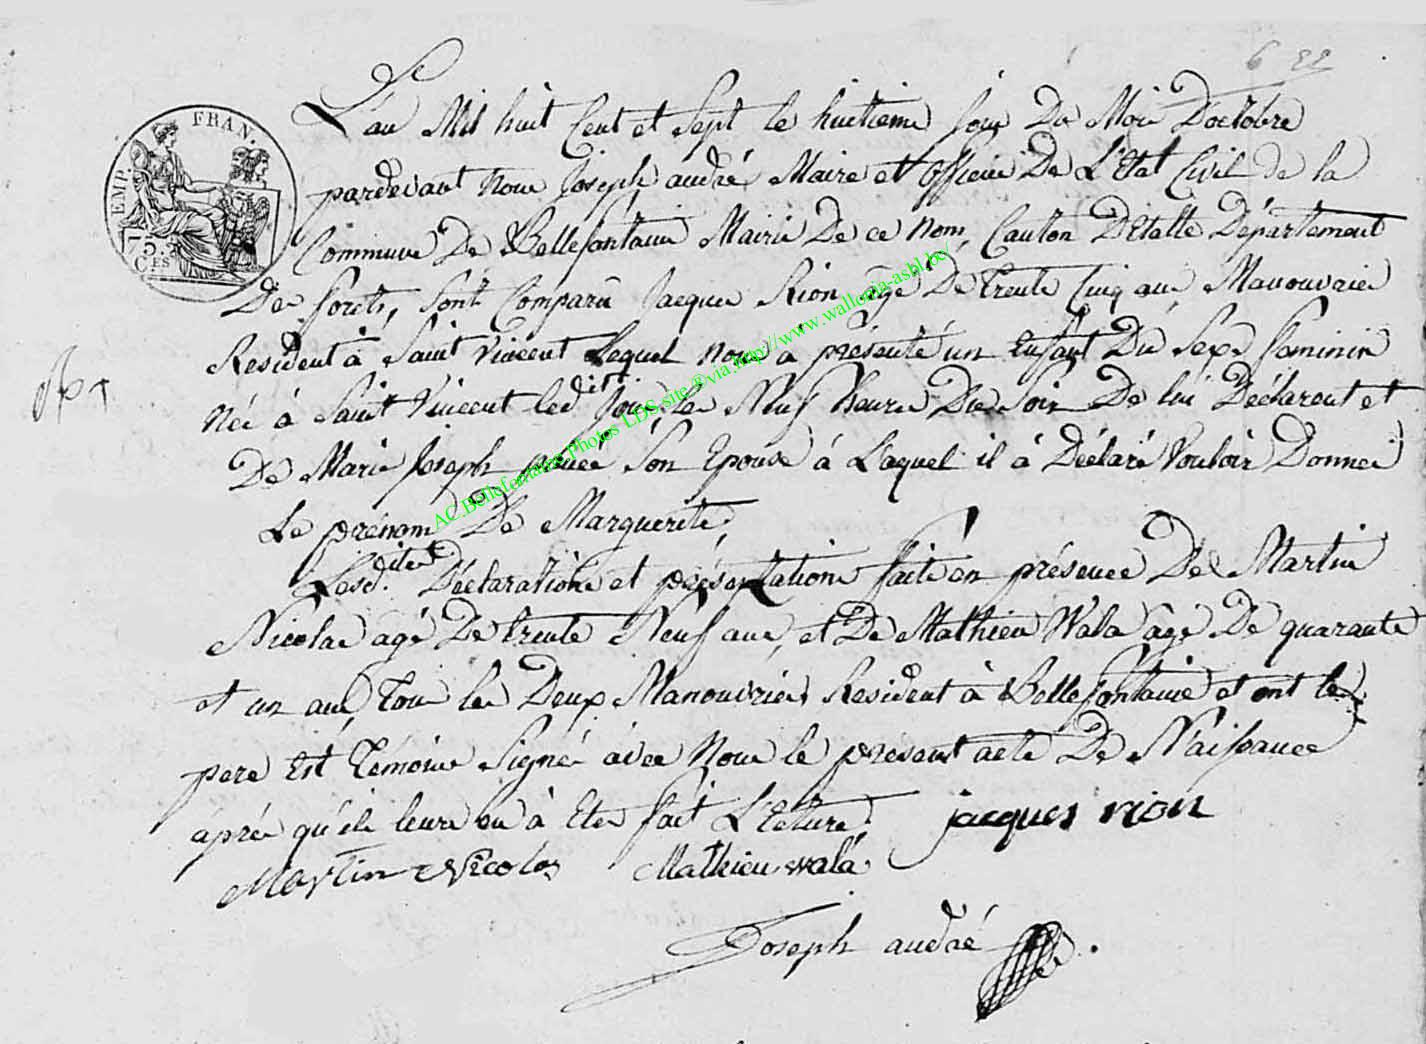 6 22
EMP. FRAN.
C.ES
L'an Mil huit Cent et Sept le huitieme jour Du Moi D'octobre
pardevant nous Joseph andré Maire et officier De L'Etat Civil de la
Commune De Bellefontaine Mairie De ce nom, Canton D'Etalle Département
Des forets, Sont Comparu Jacques Rion agé De trente Cinq ans Manouvrier
Resident à Saint Vincent Lequel nous a présenté un Enfant Du Sexe feminin
Née à Saint Vincent led.dit jour les Neuf heures Du Soir De lui Déclarent et
De Marie Joseph son Epouse à Laquel il à Déclaré Vouloir Donner
Le prénom De Marguerite,
Lesd.ites Déclarations et présentations faite en présence De Martin
Nicolas agé De trente Neuf ans, et De Mathieu Wala agé De quarante
et un ans, tous les Deux Manouvriers Resident à Bellefontaine et ont les
pere Est témoins Signé avec Nous le présent acte De Naissance
après qu'il leurs en à Eté fait L'ecture, jacques rion
Martin Nicolas Mathieu wala
Joseph andré
AC.Bellefontaine.Photos LDS.site ®via.http://www.wallonia-asbl.be/